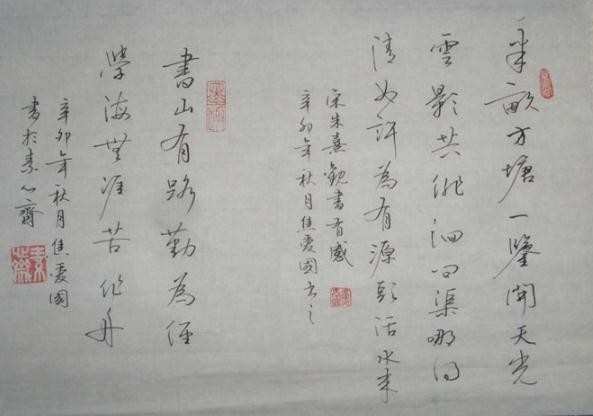 半畝方塘一鑒開天光
雲影共徘徊问渠哪得
清如許為有源頭活水来
宋朱熹觀書有感
辛卯年秋月焦愛國书之
書山有路勤為径
學海無涯苦作舟
辛卯年秋月焦愛國
書於素心齋